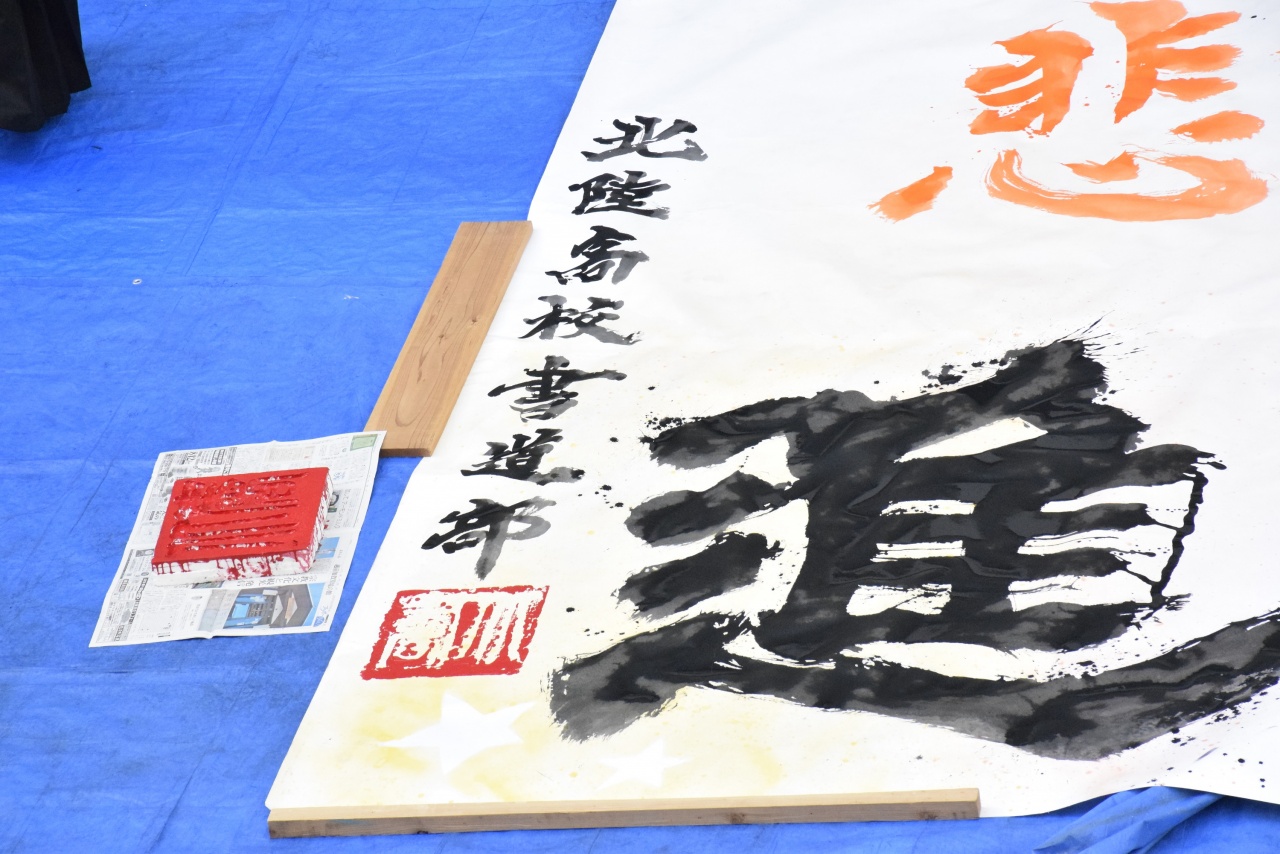 悲
進
北陸高校書道部